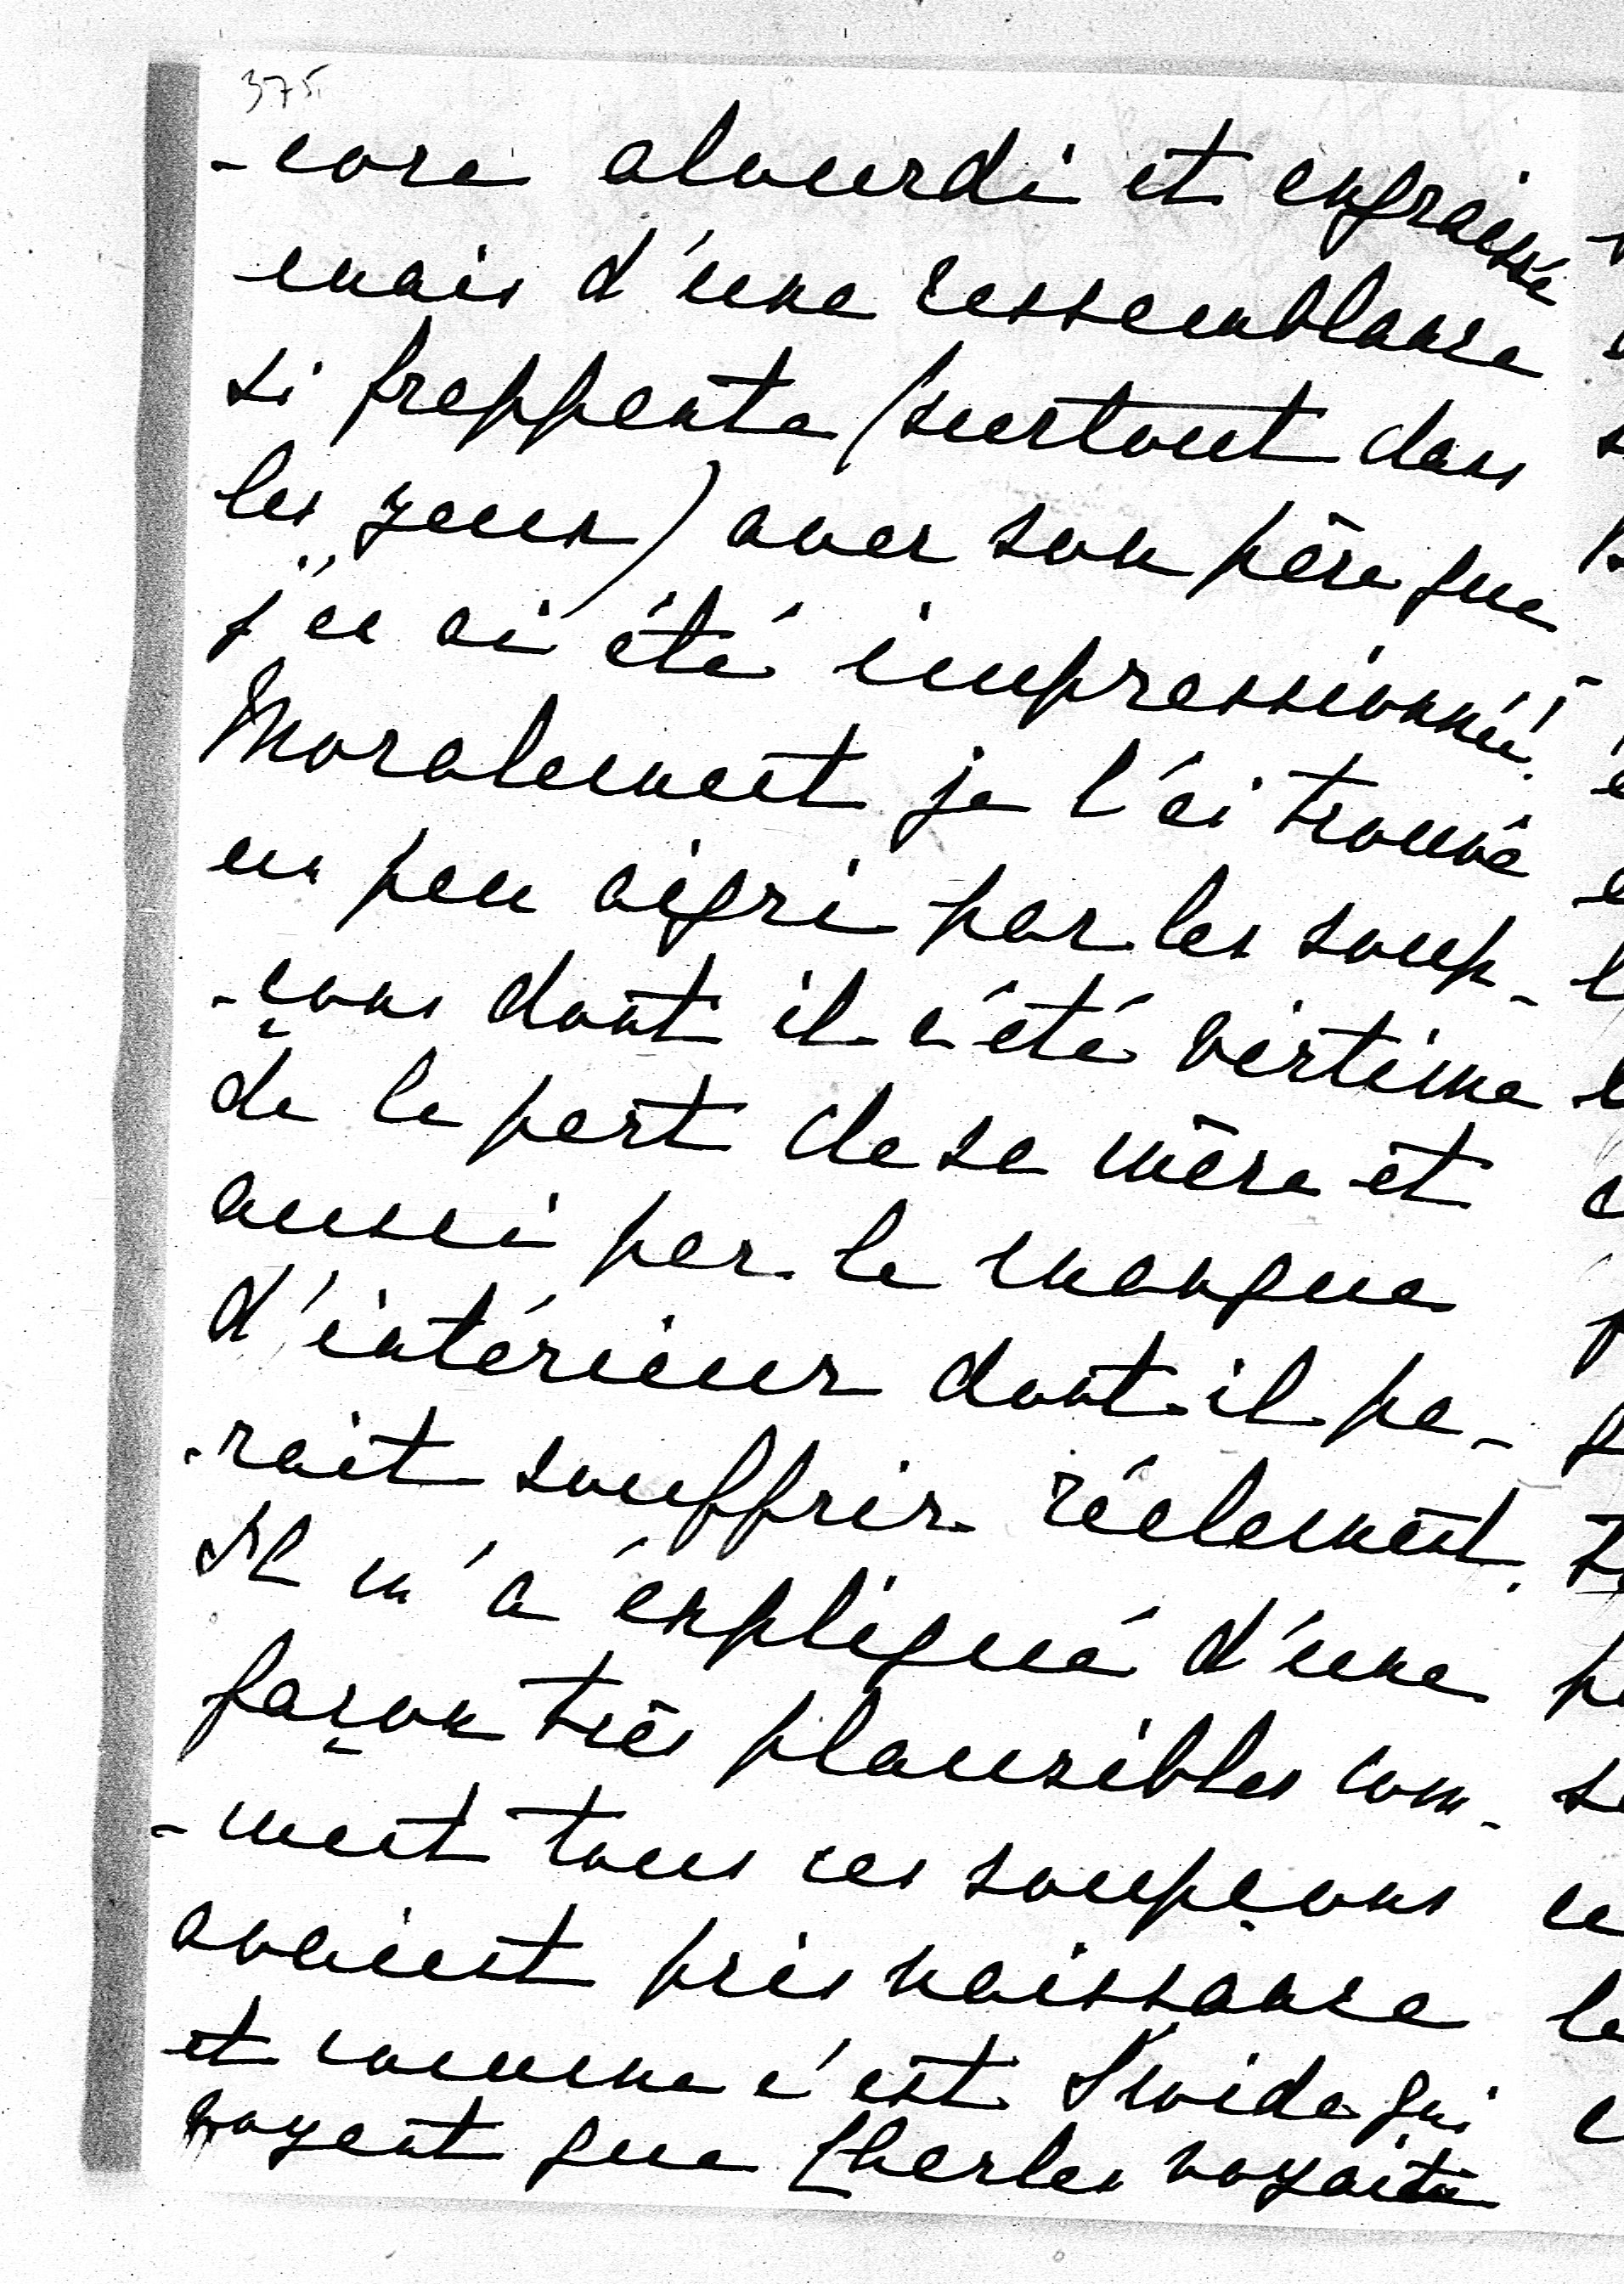 375
-core alourdi et engraissé
mais d'une ressemblance
si frappante (surtout dans
les yeux) avec son père que
j'en ai été impressionnée!
Moralement je l'ai trouvé
un peu aigri par les soup-
-çons dont il a été victime
de la part de sa mère et
aussi par le manque
d'intérieur dont il pa-
-rait souffrir réelement.
Il m'a expliqué d'une
façon très plausibles com-
-ment tous ces soupçons
avaient pris naissance
et comme c'est qui
voyant que Charles voyait